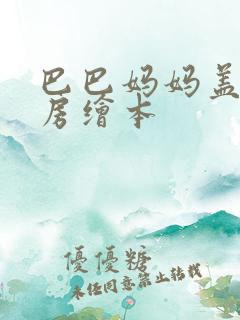 巴巴妈妈盖
房繪本
優優糖
未任同意禁止转载